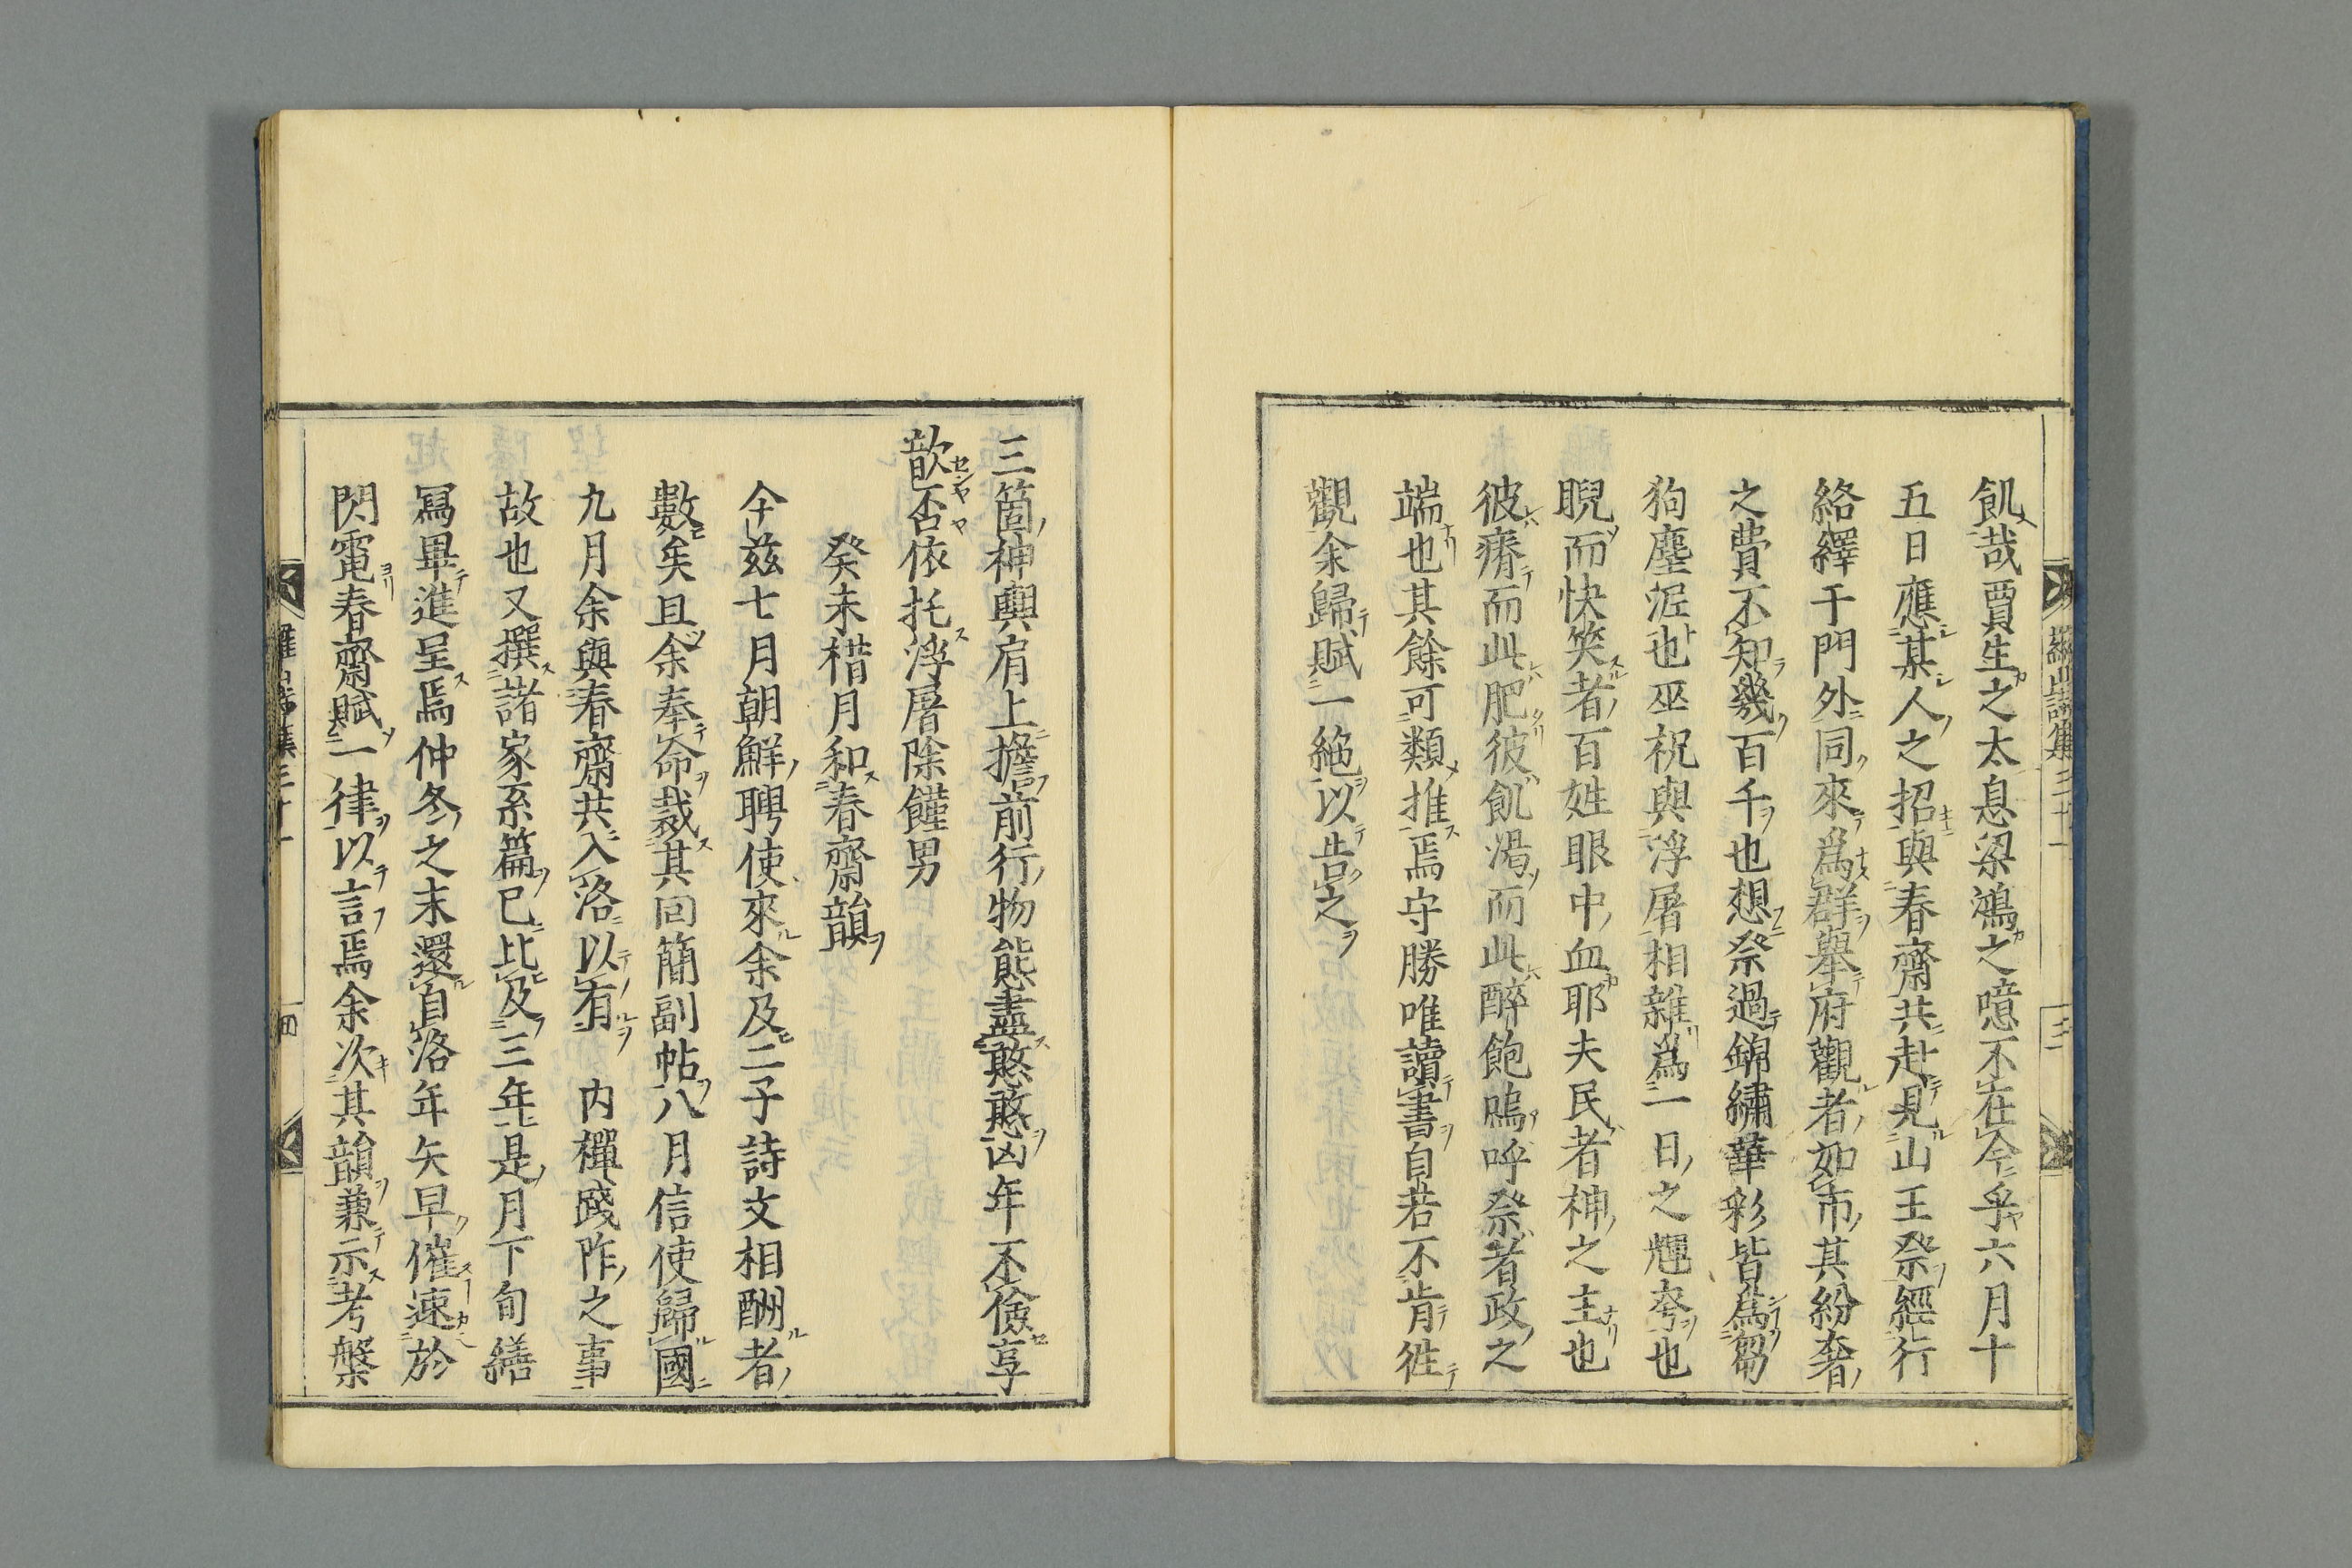 飢哉賈生之太息梁鴻之噫不在今乎六月十
五日應某人之招與春齋共赴見山王祭經行
絡繹于門外同來爲群舉府觀者如市其紛奢
之費不知幾百千也想祭過錦繡華彩皆爲芻
狗塵泥也巫祝與浮屠相雜爲一日之輝夸也
睨而快笑者百姓眼中血耶夫民者神之主也
彼瘠而此肥彼飢渴而此醉飽嗚呼祭者政之
端也其餘可類推焉守勝唯讀書自若不肯徃
觀余歸賦一絶以告之
三箇神輿肩上擔前行物態盡憨憨凶年不儉享
歆否依托浮屠除饉男
癸未稭月和春齋韻
今茲七月朝鮮聘使來余及二子詩文相酬者
數矣且余奉命裁其回簡副帖八月信使歸國
九月余與春齋共入洛以有 内禪踐阼之事
故也又撰諸家系篇已比及三年是月下旬繕
寫畢進呈焉仲冬之末還自洛年矢早催速於
閃電春齋賦一律以言焉余次其韻兼示考槃
羅山詩集 三十一
四